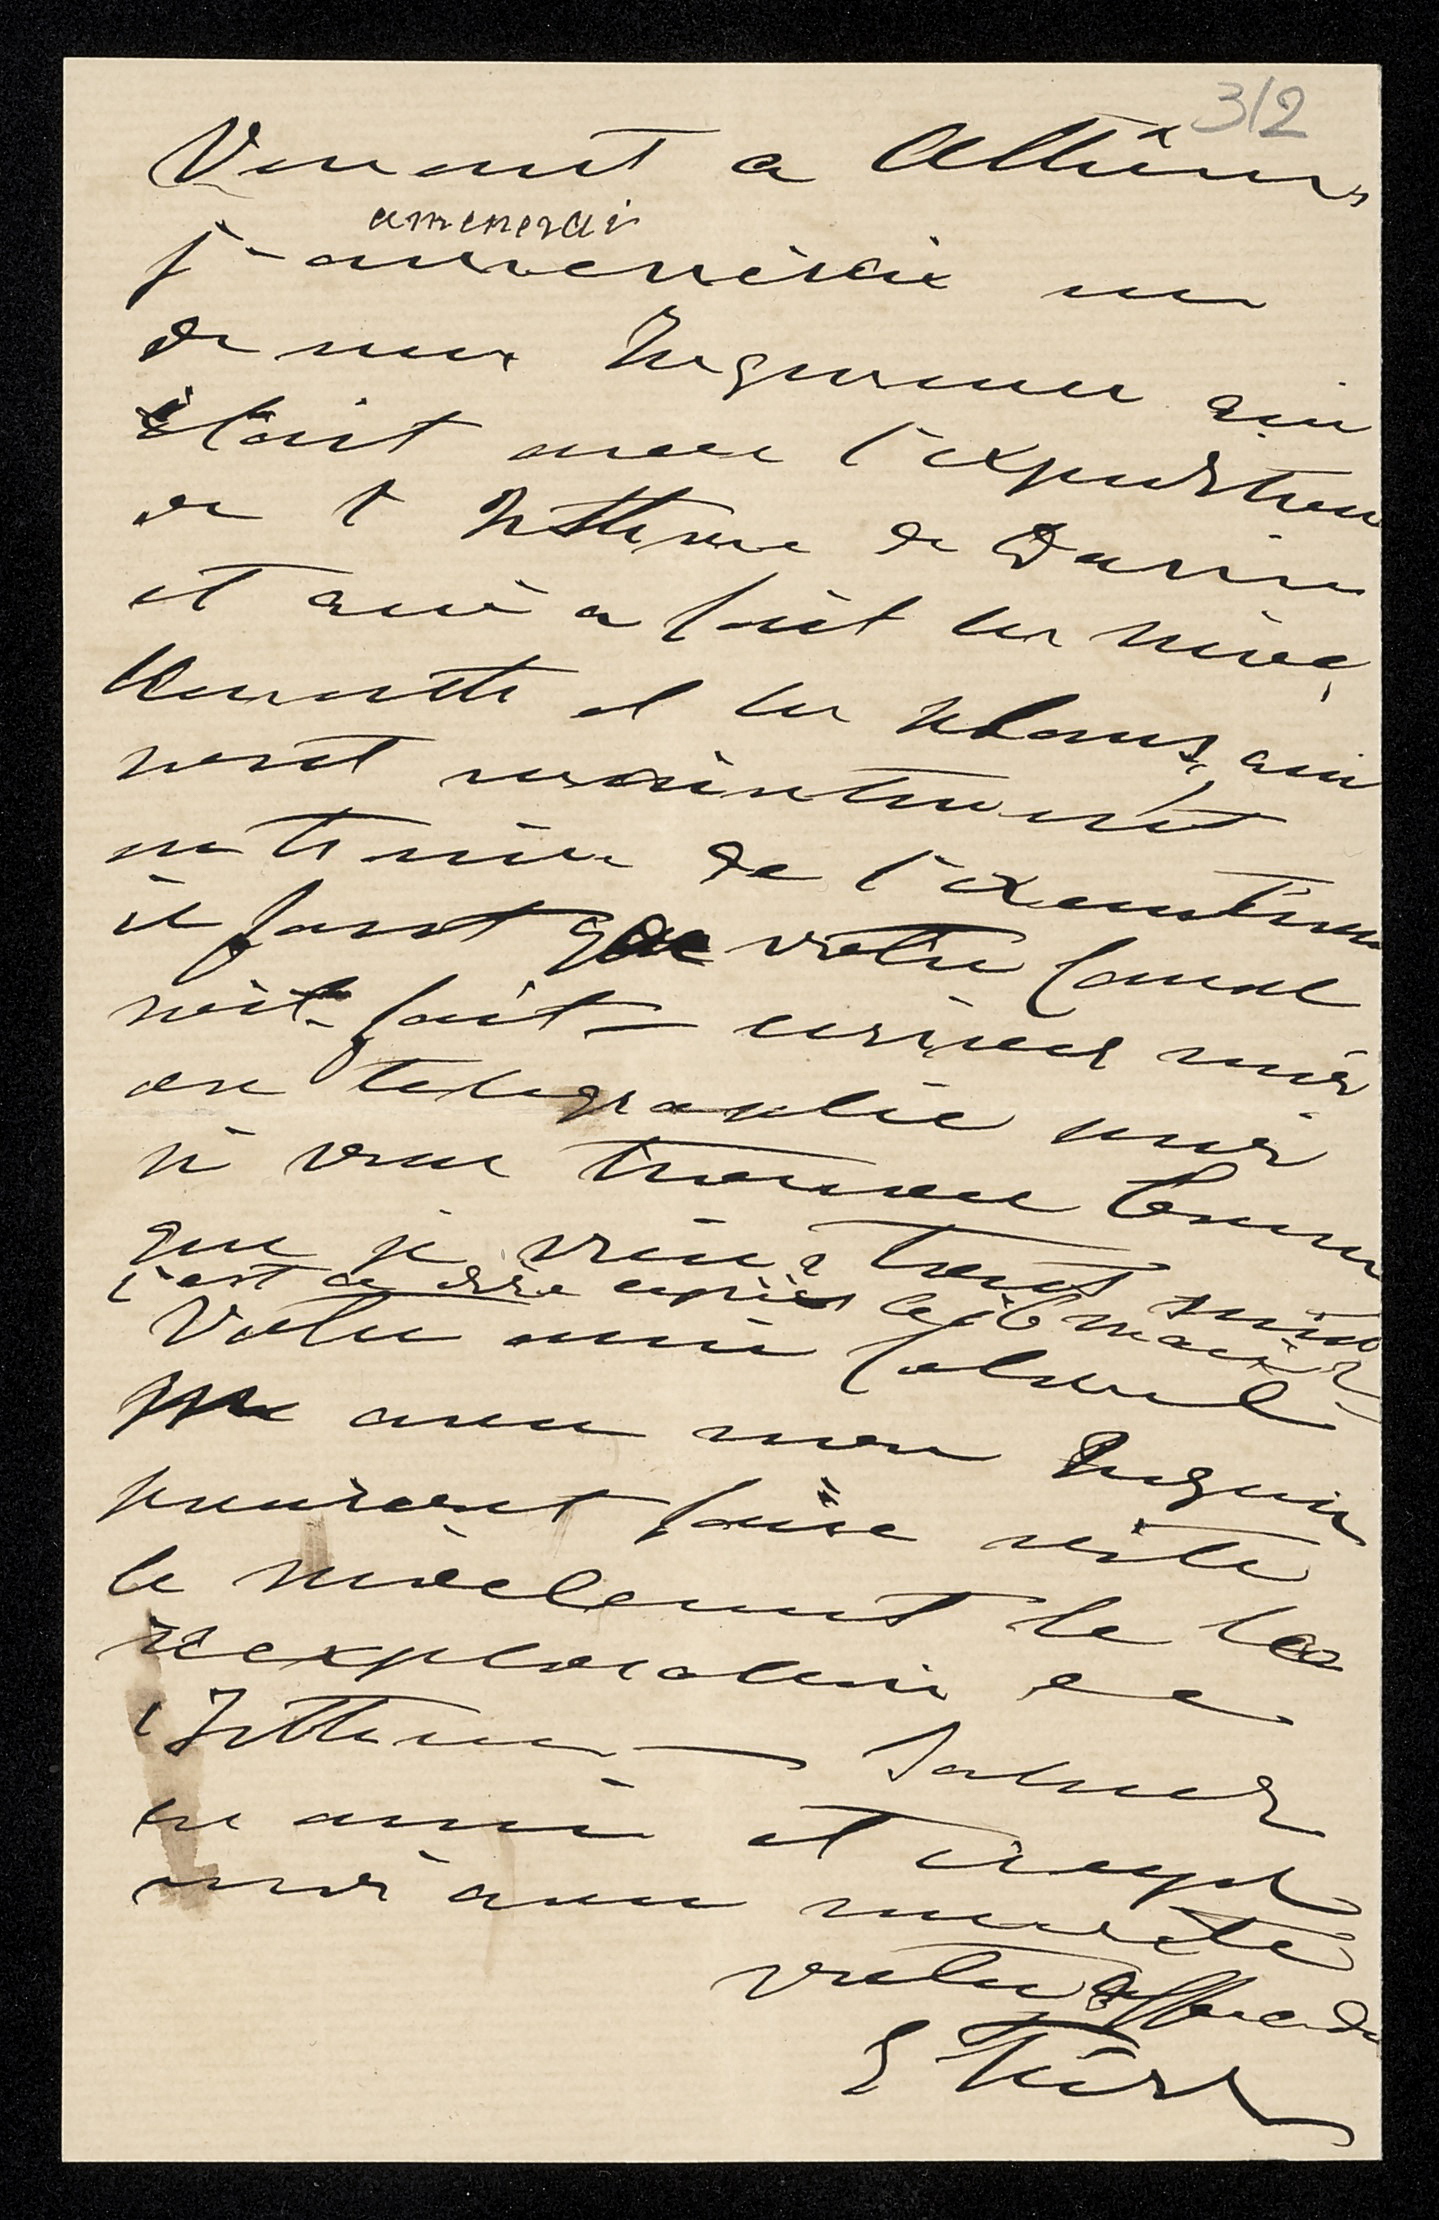 312
Venant a Athênes
amenerai
j'amenerai un
de mes Ingenieur qui
était avec l'expedition
de l'Isthme de Darien
et qui a fait les nivel
lements et les plans, qui
sont maintenant
de l'execution
il faut que votre Canal
soit fait — ecrivez moi
ou telegraphié moi
si vous trouvez bon
que je vienne
c'est a dire après le 16 mai
Votre ami
avec mon Ingenieur
pourront faire vite
le nivelement de la
reexploration de
l'Isthme — Saluez
en ami et croyez
moi avec
votre affectionné
E Türr